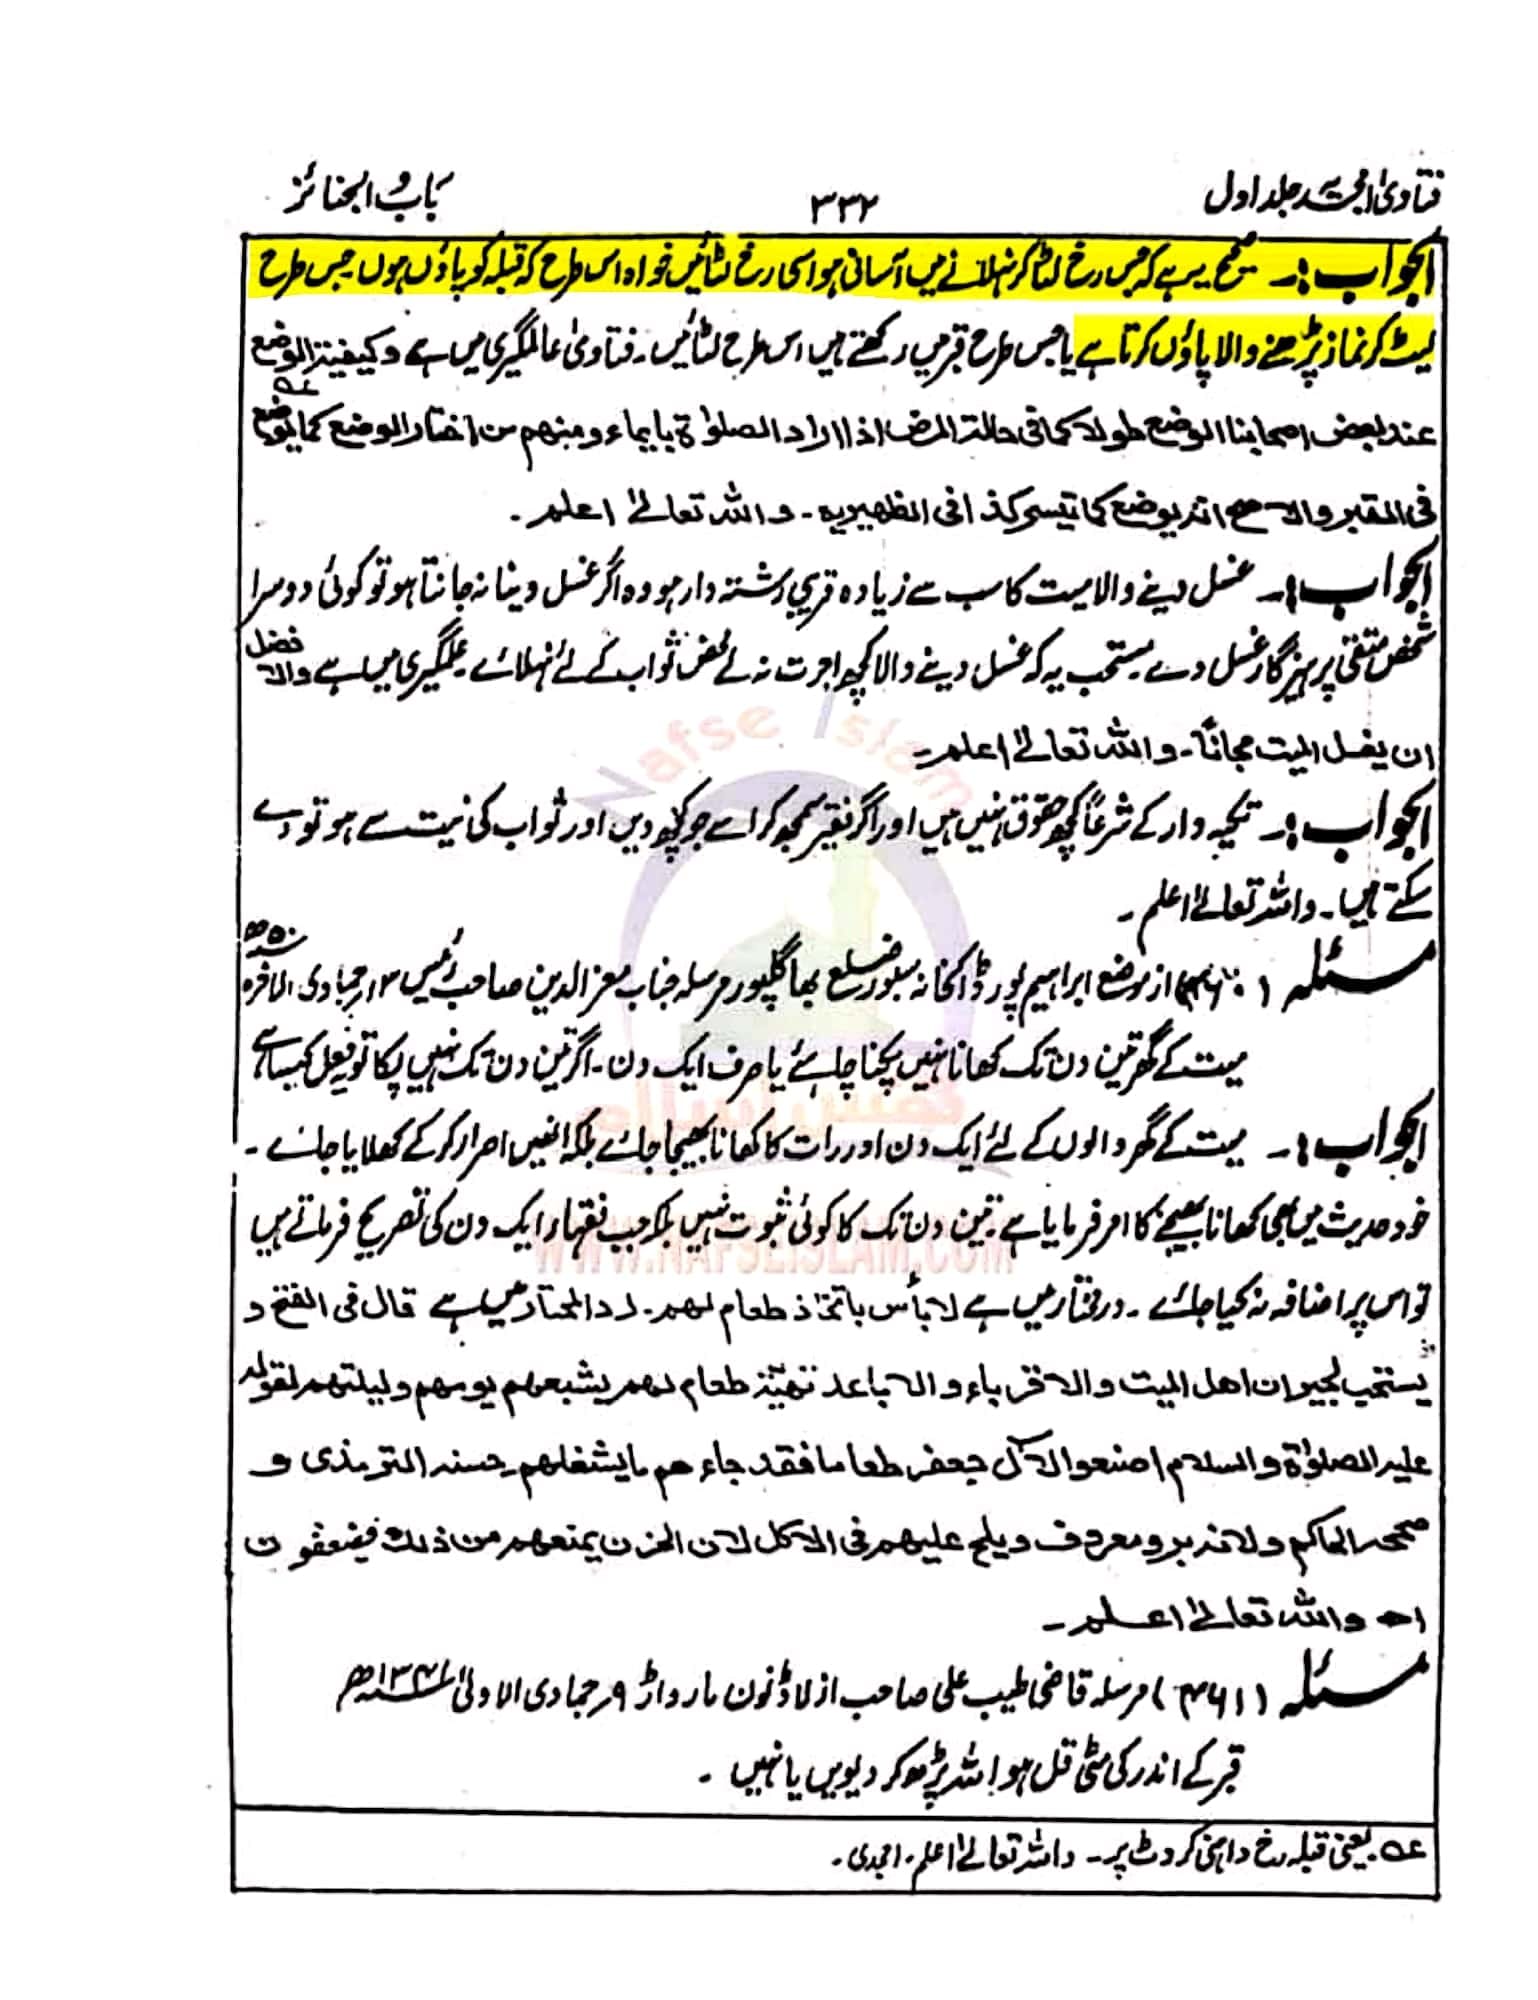 فتاویٰ امجدیہ جلد اول
۳۳۲
باب الجنائز
الجواب:۔ صحیح یہ ہے کہ جس رخ لٹا کر نہلانے میں آسانی ہو اسی رخ لٹائیں خواہ اس طرح کہ قبلہ کو پاؤں ہوں جس طرح
لیٹ کر نماز پڑھنے والا پاؤں کرتا ہے یا جس طرح قبر میں رکھتے ہیں اس طرح لٹائیں۔ فتاویٰ عالمگیری میں ہے وکیفیۃ الوضع
عند بعض اصحابنا الوضع طولا کما فی حالۃ المرض اذا اراد الصلوٰۃ بایماء ومنھم من اختار الوضع کما یوضع
فی القبر والاصح انہ یوضع کما تیسر کذا فی الظھیریہ۔ واللہ تعالیٰ اعلم۔
الجواب:۔ غسل دینے والا میت کا سب سے زیادہ قریبی رشتہ دار ہو وہ اگر غسل دینا نہ جانتا ہو تو کوئی دوسرا
شخص متقی پرہیزگار غسل دے۔ مستحب یہ کہ غسل دینے والا کچھ اجرت نہ لے محض ثواب کے لئے نہلائے۔ عالمگیری میں ہے والافضل
ان یغسل المیت مجانًا۔ واللہ تعالیٰ اعلم۔
الجواب:۔ تکیہ دار کے شرعًا کچھ حقوق نہیں ہیں اور اگر فقیر سمجھ کر اسے جو کچھ دیں اور ثواب کی نیت سے ہو تو دے
سکتے ہیں۔ واللہ تعالیٰ اعلم۔
مسئلہ (۴۶۰) از موضع ابراہیم پور ڈاکخانہ سبور ضلع بھاگلپور مرسلہ جناب معز الدین صاحب رئیس ۱۲ر جمادی الآخرہ
میت کے گھر تین دن تک کھانا نہیں پکنا چاہئے یا صرف ایک دن۔ اگر تین دن تک نہیں پکا تو یہ فعل کیسا ہے
الجواب:۔ میت کے گھر والوں کے لئے ایک دن اور رات کا کھانا بھیجا جائے بلکہ انھیں اصرار کرکے کھلایا جائے۔
خود حدیث میں بھی کھانا بھیجنے کا امر فرمایا ہے تین دن تک کا کوئی ثبوت نہیں بلکہ جب فقہاء ایک دن کی تصریح فرماتے ہیں
تو اس پر اضافہ نہ کیا جائے۔ درمختار میں ہے لا بأس باتخاذ طعام لھم۔ ردالمحتار میں ہے قال فی الفتح و
یستحب لجیران اھل المیت والاقرباء والاباعد تھیئۃ طعام لھم یشبعھم یومھم ولیلتھم لقولہ
علیہ الصلوٰۃ والسلام اصنعوا لآل جعفر طعاما فقد جاءھم ما یشغلھم حسنہ الترمذی و
صححہ الحاکم ولانہ بر ومعروف ویلح علیھم فی الاکل لان الحزن یمنعھم من ذلک فیضعفون
اھ واللہ تعالیٰ اعلم۔
مسئلہ (۴۶۱) مرسلہ قاضی طیب علی صاحب از لاڈنون مارواڑ ۹ر جمادی الاولیٰ
قبر کے اندر کی مٹی قل ہو اللہ پڑھ کر دیویں یا نہیں۔
عہ یعنی قبلہ رخ داہنی کروٹ پر۔ واللہ تعالیٰ اعلم۔ امجدی۔
Nafse Islam
نفس اسلام
WWW.NAFSEISLAM.COM